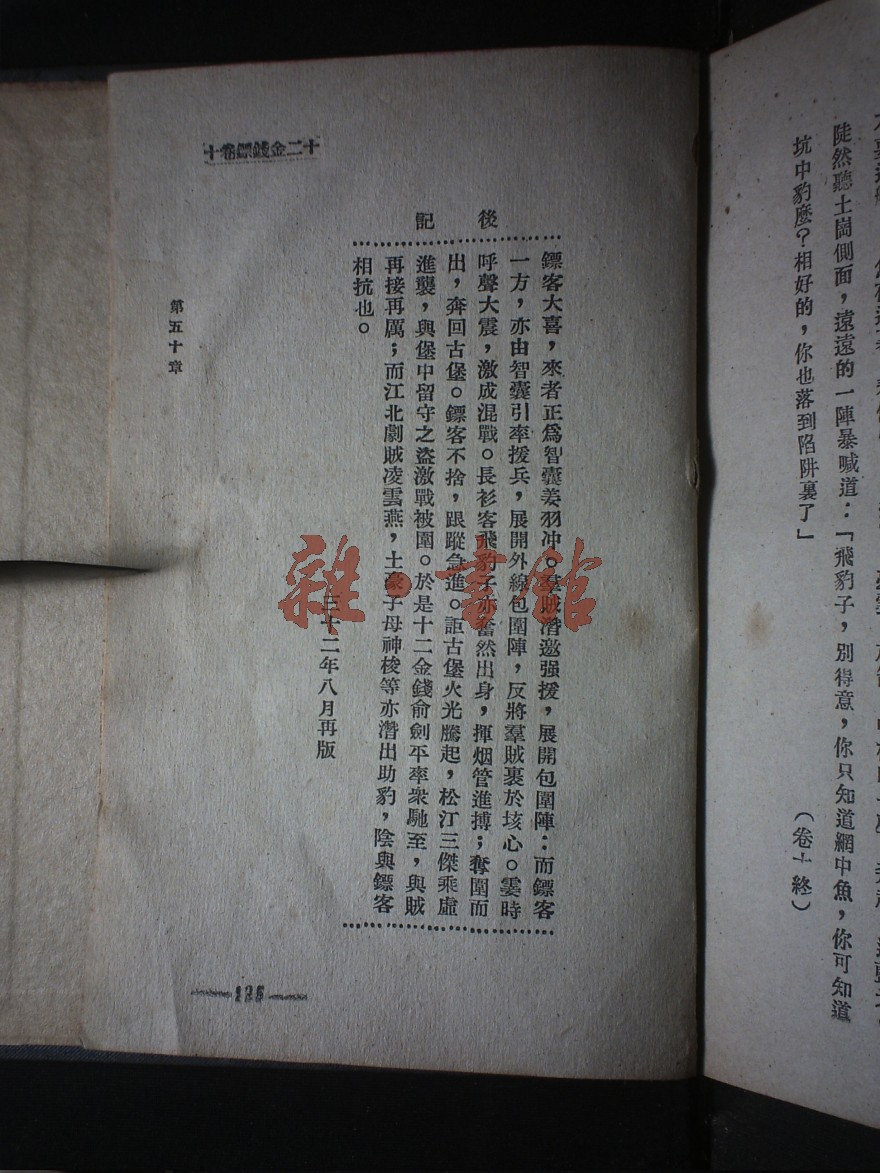 陡然聽土崗側面，遠遠的一陣暴喊道：「飛豹子，別得意，你只知道網中魚，你可知道
坑中豹麼？相好的，你也落到陷阱裏了」
（卷十終）
十二金錢鏢卷十
後記
鏢客大喜，來者正爲智囊姜羽冲。羣賊潛邀强援，展開包圍陣：而鏢客
一方，亦由智囊引率援兵，展開外線包圍陣，反將羣賊裹於垓心。霎時
呼聲大震，激成混戰。長衫客飛豹子亦奮然出身，揮烟管進搏；奪圍而
出，奔回古堡。鏢客不捨，跟蹤急進。詎古堡火光騰起，松江三傑乘虛
進襲，與堡中留守之盜激戰被圍。於是十二金錢俞劍平率衆馳至，與賊
再接再厲；而江北劇賊凌雲燕，土豪子母神梭等亦潛出助豹，陰與鏢客
相抗也。
三十二年八月再版
第五十章
125
雜·書館